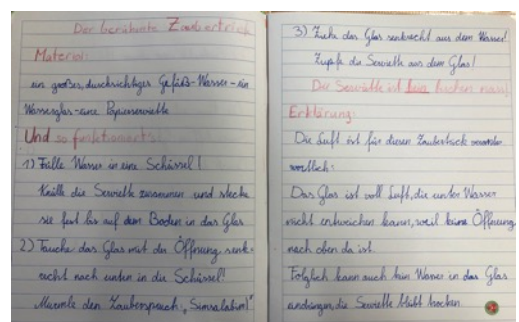 Der berühmte Zaubertrick
Material:
ein großes, durchsichtiges Gefäß - Wasser - ein
Wasserglas - eine Papierserviette
Und so funktioniert's:
1) Fülle Wasser in eine Schüssel!
Knülle die Serviette zusammen und stecke
sie fest bis auf dem Boden in das Glas
2) Tauche das Glas mit der Öffnung senk-
recht nach unten in die Schüssel!
Murmle den Zauberspruch „Simsalabim!"
3) Ziehe das Glas senkrecht aus dem Wasser!
Zupfe die Serviette aus dem Glas!
Die Serviette ist kein bisschen nass!
Erklärung:
Die Luft ist für diesen Zaubertrick
wortlich:
Das Glas ist voll Luft, die unter Wasser
nicht entweichen kann, weil keine Öffnung
nach oben da ist.
Folglich kann auch kein Wasser in das Glas
eindringen, die Serviette bleibt trocken